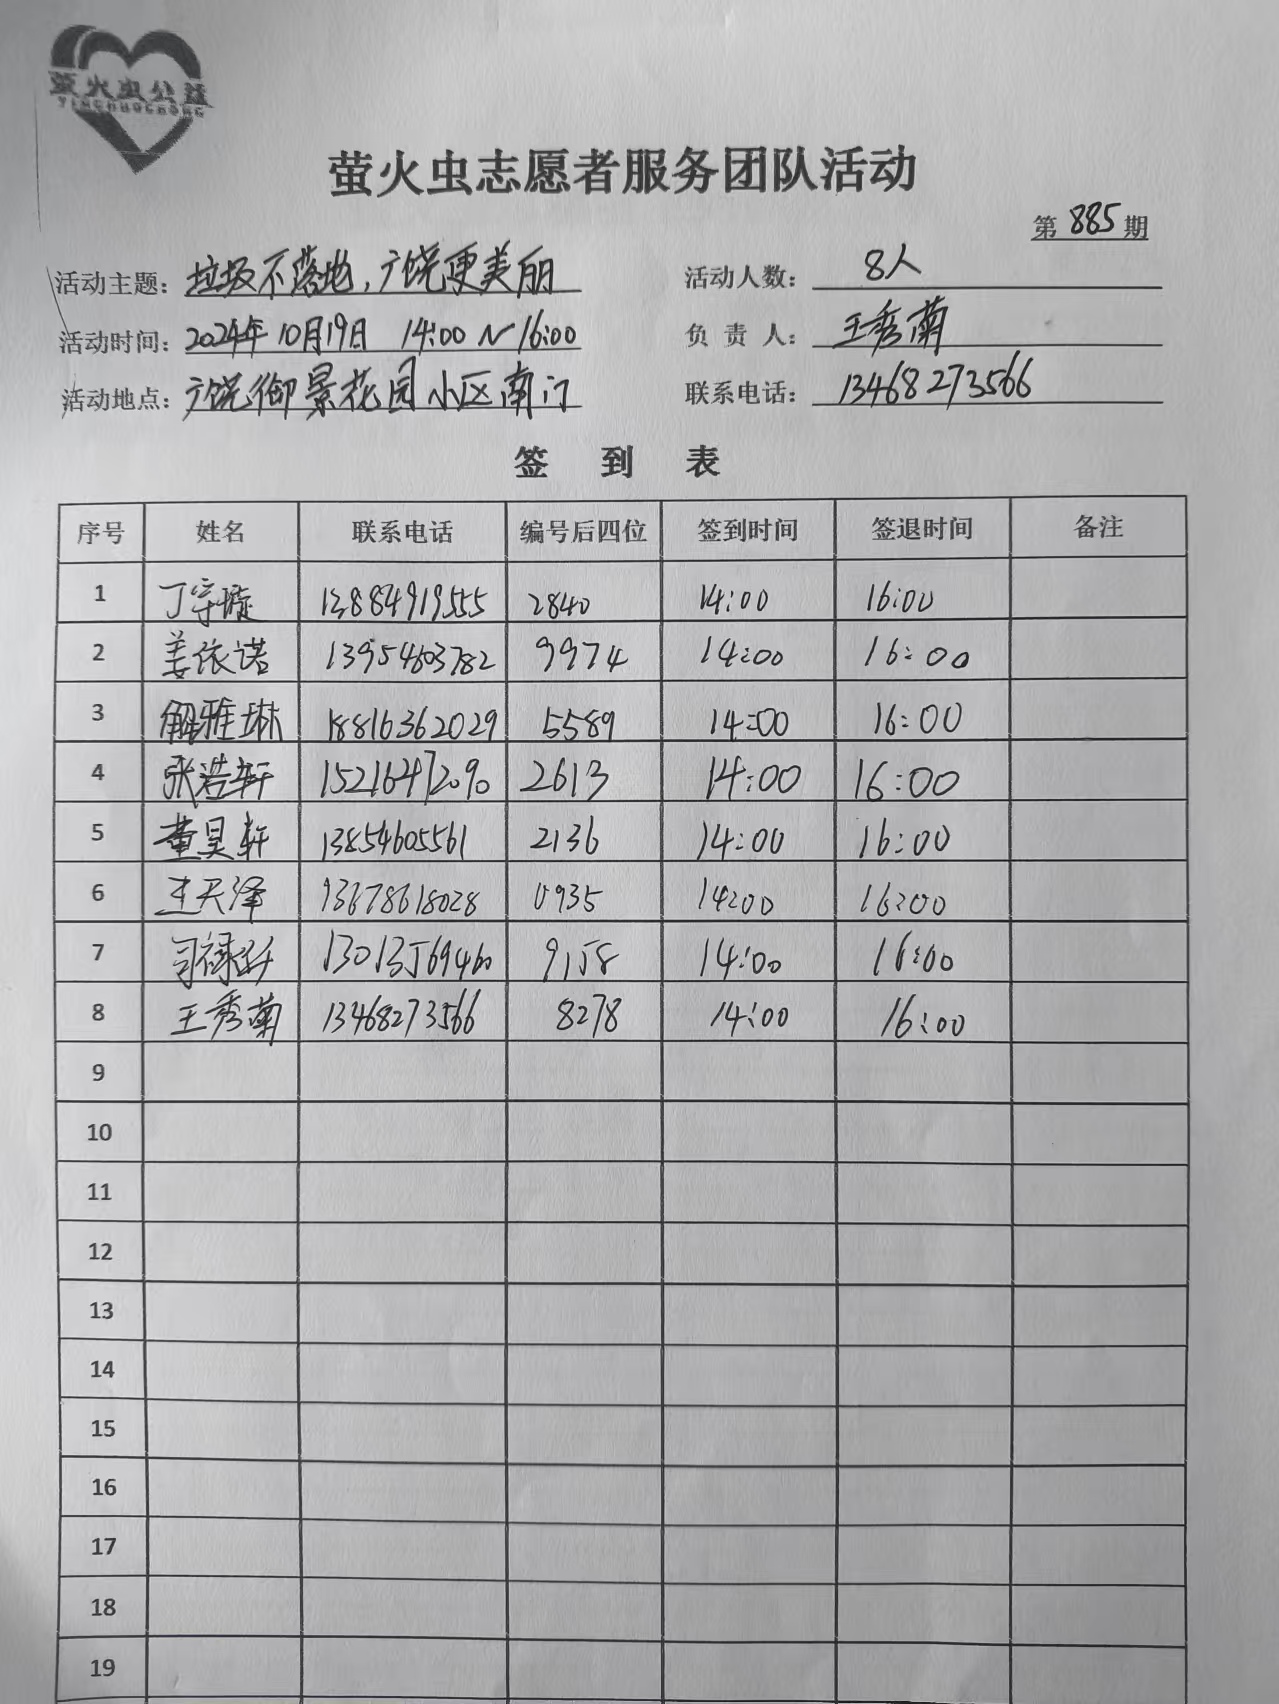 萤火虫公益
YINGHUOCHONG
萤火虫志愿者服务团队活动
第 885 期
活动主题： 垃圾不落地，广饶更美丽 活动人数： 8人
活动时间： 2024年10月19日 14:00～16:00 负 责 人： 王秀菊
活动地点： 广饶御景花园小区南门 联系电话： 13468273566
签 到 表
序号 姓名 联系电话 编号后四位 签到时间 签退时间 备注
1 丁守璇 13884919555 2840 14:00 16:00
2 姜依诺 13954603782 9974 14:00 16:00
3 解雅琳 18816362029 5589 14:00 16:00
4 张浩轩 15216472090 2613 14:00 16:00
5 董昊轩 13854605561 2136 14:00 16:00
6 王天泽 0935 14:00 16:00
7 9158 14:00 16:00
8 王秀菊 13468273566 8278 14:00 16:00
9
10
11
12
13
14
15
16
17
18
19